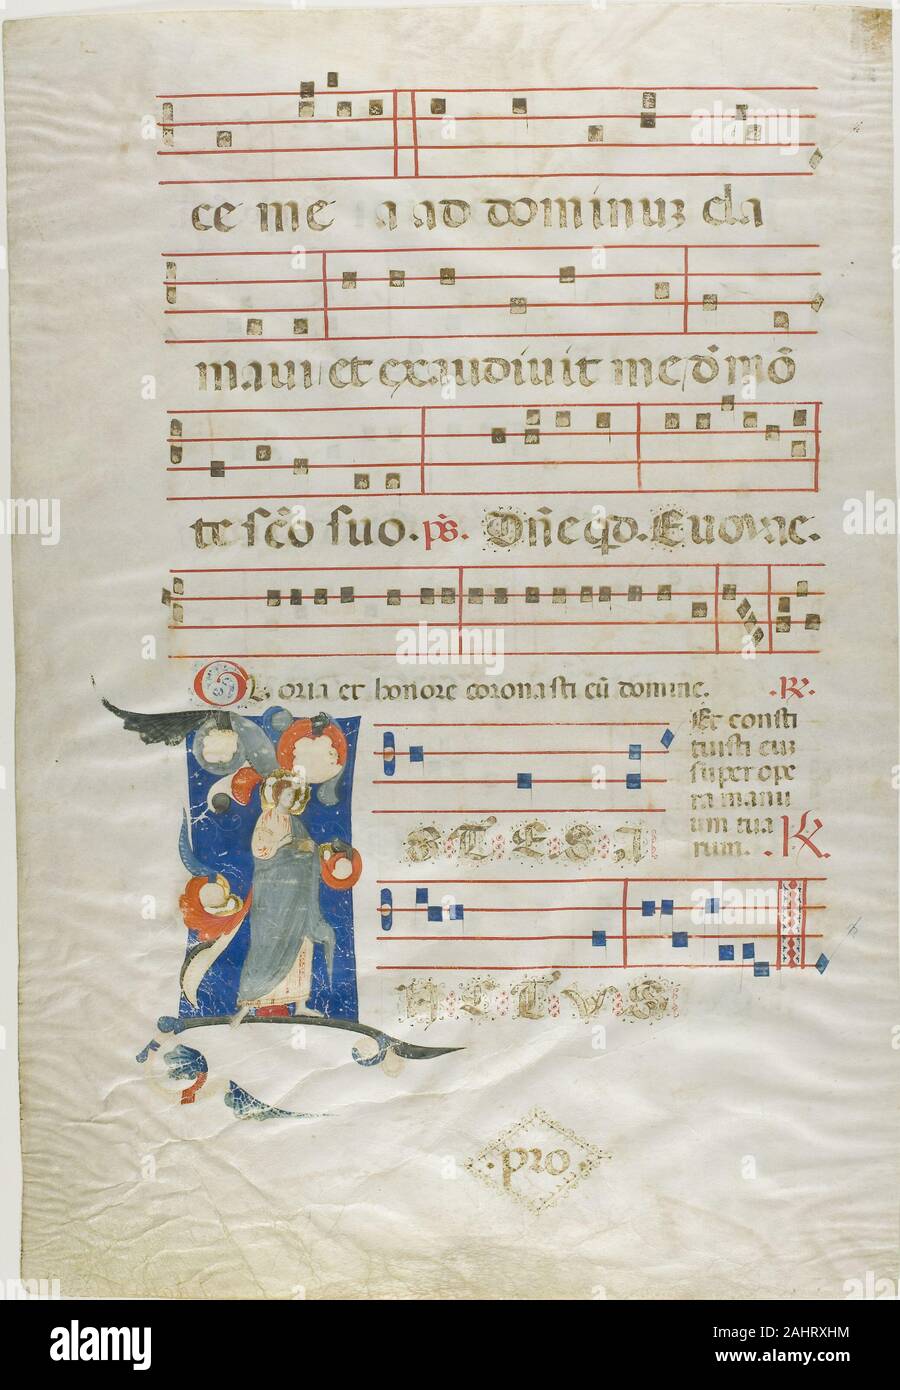 ce mea ad dominuʒ cla
maui et exaudiuit me de mō
te sc̄o suo. p̄s. Dn̄e qd. Euouae.
Gloria et honore coronasti eū domine. .R.
Et consti
tuisti euʒ
super ope
ra manu
um tua
rum. .R.
ISTE SCT
pro
alamy
a
Image ID: 2AHRXHM
www.alamy.com